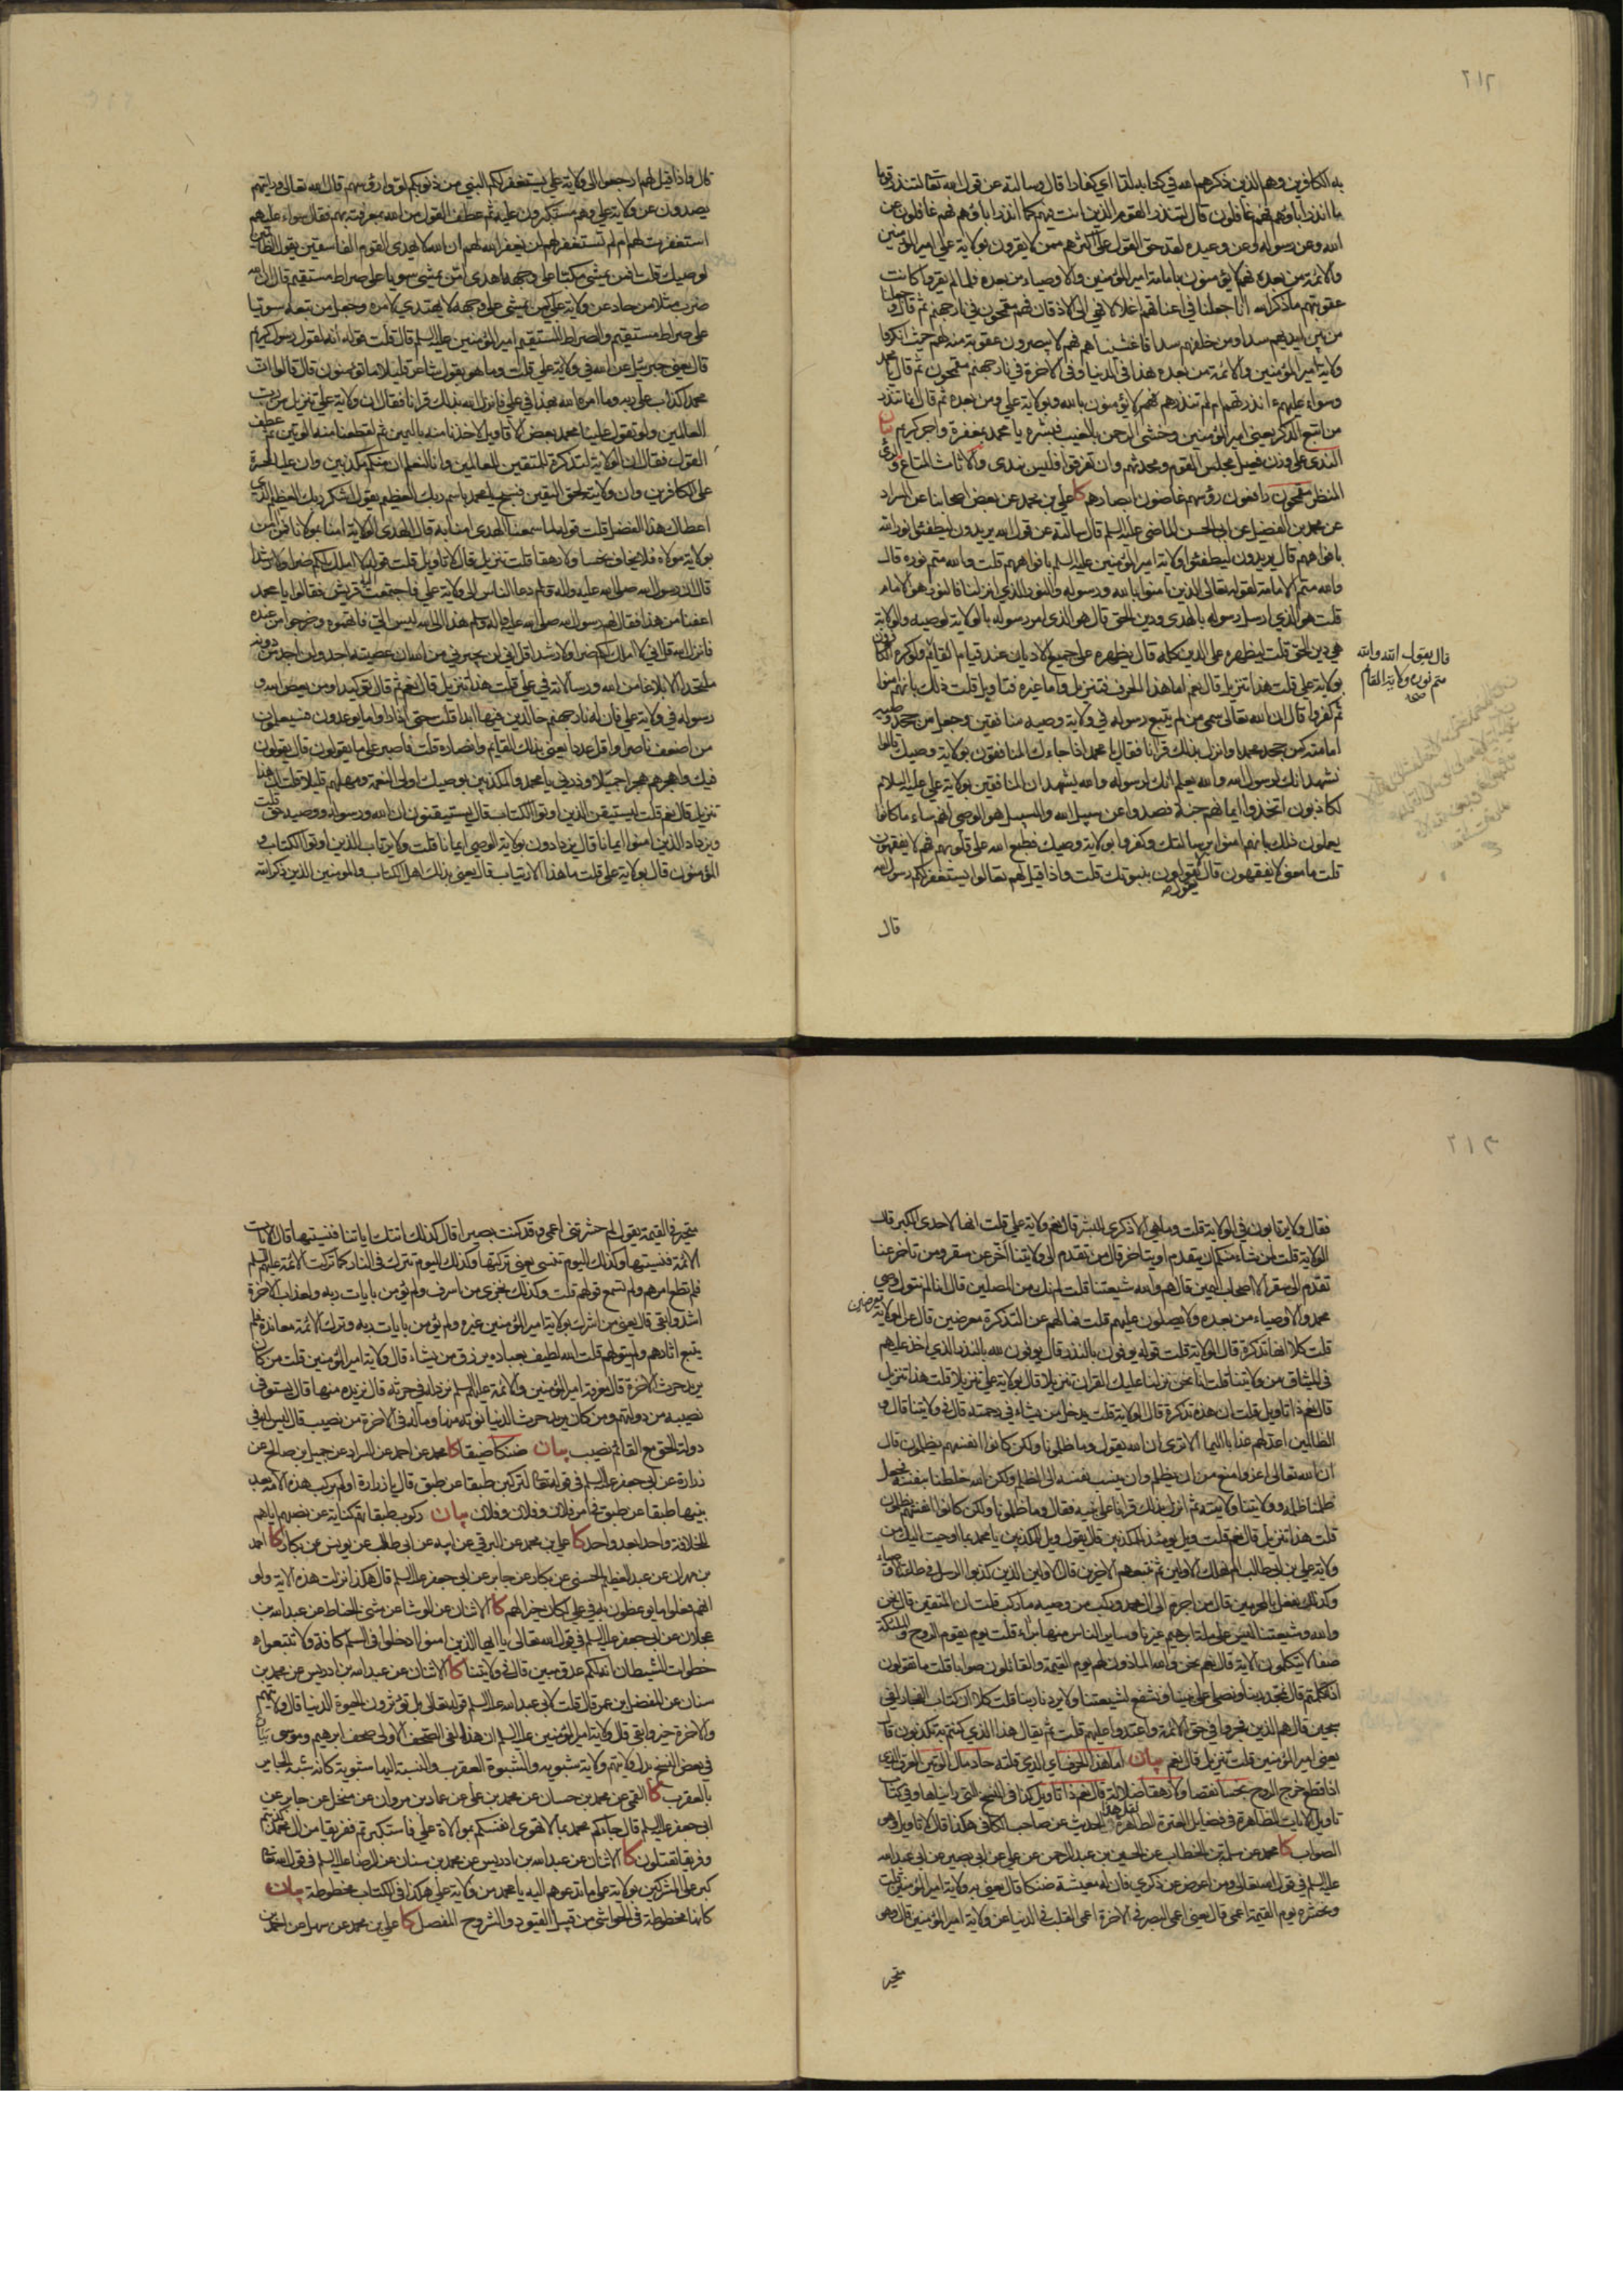 ٢١٢
به الكافرين وهم الذين ذكرهم الله في كتابه لدا اي كفارا قال وسالته عن قول الله تعالى لتنذر قوما
ما انذر اباؤهم فهم غافلون قال لتنذر القوم الذين انت فيهم كما انذر اباؤهم فهم غافلون عن
الله وعن رسوله وعن وعيده لقد حق القول على اكثرهم ممن لا يقرون بولاية علي امير المؤمنين
والائمة من بعده فهم لا يؤمنون بامامة امير المؤمنين والاوصياء من بعده فلما لم يقروا كانت
عقوبتهم ما ذكر الله انا جعلنا في اعناقهم اغلالا فهي الى الاذقان فهم مقمحون في نار جهنم ثم قال وجعلنا
من بين ايديهم سدا ومن خلفهم سدا فاغشيناهم فهم لا يبصرون عقوبة منه لهم حيث انكروا
ولاية امير المؤمنين والائمة من بعده هذا في الدنيا وفي الاخرة في نار جهنم مقمحون ثم قال يا محمد
وسواء عليهم ءانذرتهم ام لم تنذرهم فهم لا يؤمنون بالله وبولاية علي ومن بعده ثم قال انما تنذر
من اتبع الذكر يعني امير المؤمنين وخشي الرحمن بالغيب فبشره يا محمد بمغفرة واجر كريم بيان
الندي على وزن فعيل مجلس القوم ومحدثهم وان تفرقوا فليس بندي والاثاث المتاع والرئي
المنظر مقمحون رافعون رؤسهم غاضون ابصارهم كا علي بن محمد عن بعض اصحابنا عن السراد
عن محمد بن الفضيل عن ابي الحسن الماضي عليه السلم قال سالته عن قول الله يريدون ليطفئوا نور الله
بافواههم قال يريدون ليطفئوا ولاية امير المؤمنين عليه السلم بافواههم قلت والله متم نوره قال
والله متم الامامة لقوله تعالى الذين امنوا بالله ورسوله والنور الذي انزلنا فالنور هو الامام
قلت هو الذي ارسل رسوله بالهدى ودين الحق قال هو الذي امر رسوله بالولاية لوصيه والولاية
هي دين الحق قلت ليظهره على الدين كله قال يظهره على جميع الاديان عند قيام القائم ولو كره الكافرون
قال يقول الله والله
متم نوره ولاية القائم
صح
بولاية علي قلت هذا تنزيل قال نعم اما هذا الحرف فتنزيل واما غيره فتاويل قلت ذلك بانهم امنوا
ثم كفروا قال ان الله تعالى سمى من لم يتبع رسوله في ولاية وصيه منافقين وجعل من جحد وصيه
امامته كمن جحد محمدا وانزل بذلك قرانا فقال يا محمد اذا جاءك المنافقون بولاية وصيك قالوا
نشهد انك لرسول الله والله يعلم انك لرسوله والله يشهد ان المنافقين بولاية علي عليه السلام
لكاذبون اتخذوا ايمانهم جنة فصدوا عن سبيل الله والسبيل هو الوصي انهم ساء ما كانوا
يعملون ذلك بانهم امنوا برسالتك وكفروا بولاية وصيك فطبع الله على قلوبهم فهم لا يفقهون
قلت ما معنى لا يفقهون قال يقول لا يعقلون بنبوتك قلت واذا قيل لهم تعالوا يستغفر لكم رسول الله
قال
قال واذا قيل لهم ارجعوا الى ولاية علي يستغفر لكم النبي من ذنوبكم لووا رؤسهم قال الله تعالى ورايتهم
يصدون عن ولاية علي وهم مستكبرون عليه ثم عطف القول من الله بمعرفته بهم فقال سواء عليهم
استغفرت لهم ام لم تستغفر لهم لن يغفر الله لهم ان الله لا يهدي القوم الفاسقين يقول الظالمين
لوصيك قلت افمن يمشي مكبا على وجهه اهدى امن يمشي سويا على صراط مستقيم قال ان الله
ضرب مثلا من حاد عن ولاية علي كمن يمشي على وجهه لا يهتدي لامره وجعل من تبعه سويا
على صراط مستقيم والصراط المستقيم امير المؤمنين عليه السلم قال قلت قوله انه لقول رسول كريم
قال يعني جبرئيل عن الله في ولاية علي قلت وما هو بقول شاعر قليلا ما تؤمنون قال قالوا ان
محمدا كذاب على ربه وما امره الله بهذا في علي فانزل الله بذلك قرانا فقال ان ولاية علي تنزيل من رب
العالمين ولو تقول علينا محمد بعض الاقاويل لاخذنا منه باليمين ثم لقطعنا منه الوتين ثم عطف
القول فقال ان الولاية لتذكرة للمتقين للعالمين وانا لنعلم ان منكم مكذبين وان عليا لحسرة
على الكافرين وان ولايته لحق اليقين فسبح يا محمد باسم ربك العظيم يقول اشكر ربك العظيم الذي
اعطاك هذا الفضل قلت قوله لما سمعنا الهدى امنا به قال الهدى الولاية امنا بمولانا فمن امن
بولاية مولاه فلا يخاف بخسا ولا رهقا قلت تنزيل قال لا تاويل قلت قوله لا املك لكم ضرا ولا رشدا
قال ان رسول الله صلى الله عليه واله وسلم دعا الناس الى ولاية علي فاجتمعت اليه قريش فقالوا يا محمد
اعفنا من هذا فقال لهم رسول الله صلى الله عليه واله وسلم هذا الى الله ليس الي فاتهموه وخرجوا من عنده
فانزل الله قل اني لا املك لكم ضرا ولا رشدا قل اني لن يجيرني من الله ان عصيته احد ولن اجد من دونه
ملتحدا الا بلاغا من الله ورسالاته في علي قلت هذا تنزيل قال نعم ثم قال توكيدا ومن يعص الله و
رسوله في ولاية علي فان له نار جهنم خالدين فيها ابدا قلت حتى اذا راوا ما يوعدون فسيعلمون
من اضعف ناصرا واقل عددا يعني بذلك القائم وانصاره قلت فاصبر على ما يقولون قال يقولون
فيك واهجرهم هجرا جميلا وذرني يا محمد والمكذبين بوصيك اولي النعمة ومهلهم قليلا قلت ان هذا
تنزيل قال نعم قلت ليستيقن الذين اوتوا الكتاب قال يستيقنون ان الله ورسوله ووصيه حق قلت
ويزداد الذين امنوا ايمانا قال يزدادون بولاية الوصي ايمانا قلت ولا يرتاب الذين اوتوا الكتاب و
المؤمنون قال بولاية علي قلت ما هذا الارتياب قال يعني بذلك اهل الكتاب والمؤمنين الذين ذكر الله
٢١٣
فقال ولا يرتابون في الولاية قلت وما هي الا ذكرى للبشر قال نعم ولاية علي قلت انها لاحدى الكبر قال
الولاية قلت لمن شاء منكم ان يتقدم او يتاخر قال من تقدم الى ولايتنا اخر عن سقر ومن تاخر عنا
تقدم الى سقر الا اصحاب اليمين قال هم والله شيعتنا قلت لم نك من المصلين قال انا لم نتول وصي
محمد والاوصياء من بعده ولا يصلون عليهم قلت فما لهم عن التذكرة معرضين قال عن الولاية معرضين
قلت كلا انها تذكرة قال الولاية قلت قوله يوفون بالنذر قال يوفون لله بالنذر الذي اخذ عليهم
في الميثاق من ولايتنا قلت انا نحن نزلنا عليك القران تنزيلا قال بولاية علي تنزيلا قلت هذا تنزيل
قال نعم ذا تاويل قلت ان هذه تذكرة قال الولاية قلت يدخل من يشاء في رحمته قال في ولايتنا قال و
الظالمين اعد لهم عذابا اليما الا ترى ان الله يقول وما ظلمونا ولكن كانوا انفسهم يظلمون قال
ان الله تعالى اعز وامنع من ان يظلم وان ينسب نفسه الى الظلم ولكن الله خلطنا بنفسه فجعل
ظلمنا ظلمه وولايتنا ولايته ثم انزل بذلك قرانا على نبيه فقال وما ظلمونا ولكن كانوا انفسهم يظلمون
قلت هذا تنزيل قال نعم قلت ويل يومئذ للمكذبين قال يقول ويل للمكذبين يا محمد بما اوحيت اليك من
ولاية علي بن ابي طالب الم نهلك الاولين ثم نتبعهم الاخرين قال الاولين الذين كذبوا الرسل في طاعة الاوصياء
وكذلك نفعل بالمجرمين قال من اجرم الى ال محمد وركب من وصيه ما ركب قلت ان المتقين قال نحن
والله وشيعتنا ليس على ملة ابرهيم غيرنا وساير الناس منها براء قلت يوم يقوم الروح والملئكة
صفا لا يتكلمون الاية قال نحن والله الماذون لهم يوم القيمة والقائلون صوابا قلت ما تقولون
اذا تكلمتم قال نمجد ربنا ونصلي على نبينا ونشفع لشيعتنا ولا يردنا ربنا قلت كلا ان كتاب الفجار لفي
سجين قال هم الذين فجروا في حق الائمة واعتدوا عليهم قلت ثم يقال هذا الذي كنتم به تكذبون قال
يعني امير المؤمنين قلت تنزيل قال نعم بيان اما هذا الحرف اي الذي قلته حاد مال الوتين العرق الذي
اذا قطع خرج الروح بخسا نقصا ولا رهقا ضلالة قال نعم ذا تاويل كذا في النسخ التي رايناها وفي كتاب
تاويل الايات الظاهرة في فضايل العترة الطاهرة نقل هذا الحديث عن صاحب الكافي هكذا قال لا تاويل وهو
الصواب كا محمد عن سلمة بن الخطاب عن الحسين بن عبد الرحمن عن علي عن ابي بصير عن ابي عبد الله
عليه السلم في قول الله تعالى ومن اعرض عن ذكري فان له معيشة ضنكا قال يعني به ولاية امير المؤمنين قلت
ونحشره يوم القيمة اعمى قال يعني اعمى البصر في الاخرة اعمى القلب في الدنيا عن ولاية امير المؤمنين قال وهو
متحير
متحير في القيمة يقول لم حشرتني اعمى وقد كنت بصيرا قال كذلك اتتك اياتنا فنسيتها قال الايات
الائمة فنسيتها وكذلك اليوم تنسى يعني تركتها وكذلك اليوم تترك في النار كما تركت الائمة عليهم السلم
فلم تطع امرهم ولم تسمع قولهم قلت وكذلك نجزي من اسرف ولم يؤمن بايات ربه ولعذاب الاخرة
اشد وابقى قال يعني من اشرك بولاية امير المؤمنين غيره ولم يؤمن بايات ربه وترك الائمة معاندة فلم
يتبع اثارهم ولم يتولهم قلت الله لطيف بعباده يرزق من يشاء قال ولاية امير المؤمنين قلت من كان
يريد حرث الاخرة قال معرفة امير المؤمنين والائمة عليهم السلم نزد له في حرثه قال نزيده منها قال يستوفي
نصيبه من دولتهم ومن كان يريد حرث الدنيا نؤته منها وما له في الاخرة من نصيب قال ليس له في
دولة الحق مع القائم نصيب بيان ضنكا ضيقا كا محمد عن احمد عن السراد عن جميل بن صالح عن
زرارة عن ابي جعفر عليه السلم في قوله تعالى لتركبن طبقا عن طبق قال يا زرارة اولم تركب هذه الامة بعد
نبيها طبقا عن طبق في امر فلان وفلان وفلان بيان ركوب طبقاتهم كناية عن نصبهم اياهم
للخلافة واحدا بعد واحد كا علي بن محمد عن البرقي عن ابيه عن ابي طالب عن يونس عن بكار كا احمد
بن مهران عن عبد العظيم الحسني عن بكار عن جابر عن ابي جعفر عليه السلم قال هكذا نزلت هذه الاية ولو
انهم فعلوا ما يوعظون به في علي لكان خيرا لهم كا الاثنان عن الوشا عن مثنى الحناط عن عبد الله بن
عجلان عن ابي جعفر عليه السلم في قول الله تعالى يا ايها الذين امنوا ادخلوا في السلم كافة ولا تتبعوا
خطوات الشيطان انه لكم عدو مبين قال في ولايتنا كا الاثنان عن عبد الله بن ادريس عن محمد بن
سنان عن المفضل بن عمر قال قلت لابي عبد الله عليه السلم قوله تعالى بل تؤثرون الحيوة الدنيا قال ولايتهم
والاخرة خير وابقى قال ولاية امير المؤمنين عليه السلم ان هذا لفي الصحف الاولى صحف ابرهيم وموسى بيان
في بعض النسخ بدل ولايتهم ولاية شبوية والشبوة العقرب والنسبة اليها شبوية كانه شبه الجاير
بالعقرب كا القمي عن محمد بن حسان عن محمد بن علي عن عمار بن مروان عن منخل عن جابر عن
ابي جعفر عليه السلم قال جاءكم محمد بما لا تهوى انفسكم بموالاة علي فاستكبرتم ففريقا من ال محمد كذبتم
وفريقا تقتلون كا الاثنان عن عبد الله بن ادريس عن محمد بن سنان عن الرضا عليه السلم في قول الله تعالى
كبر على المشركين بولاية علي ما تدعوهم اليه يا محمد من ولاية علي هكذا في الكتاب مخطوطة بيان
كانها مخطوطة في الحواشي من قبيل القيود والشروح المفصل كا علي بن محمد عن سهل عن احمد بن